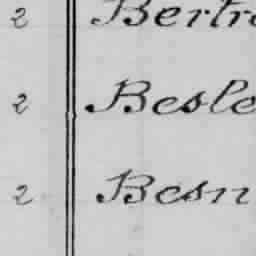 2 Bertr
2 Besle
2 Besn